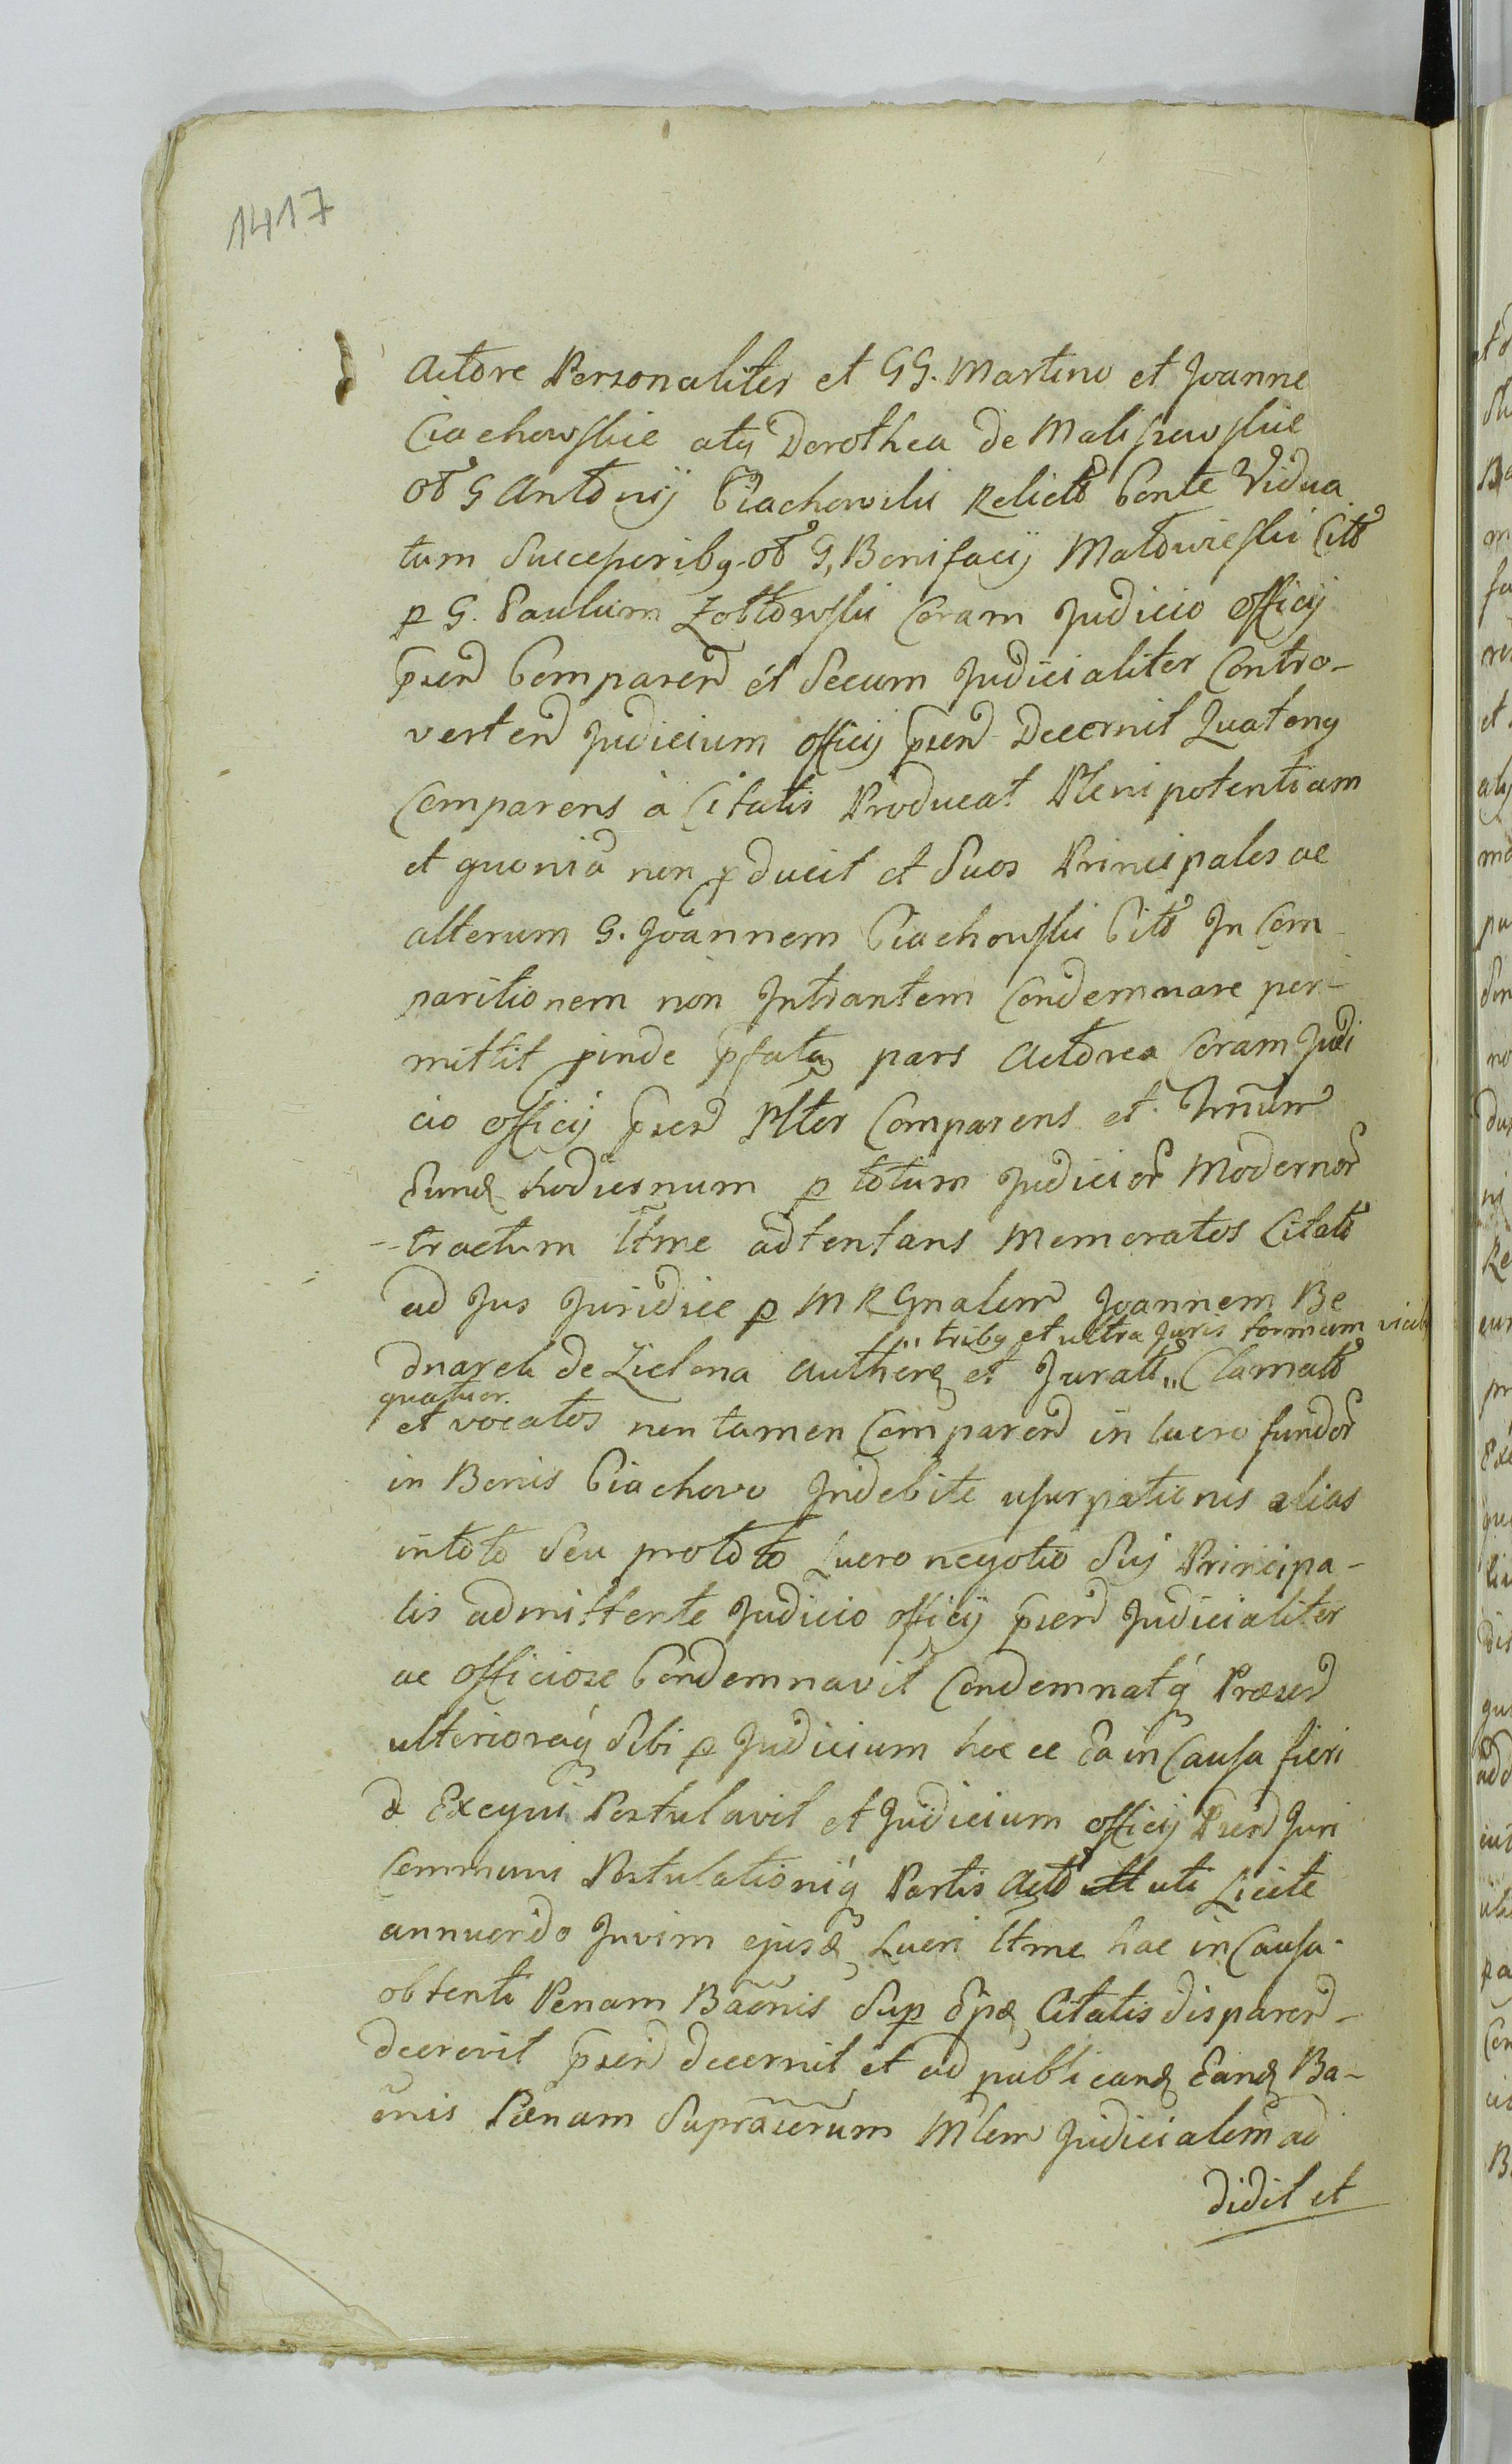 1417
Actore Personaliter et GG. Martino et Joanne
Ciachowskie atq Dorothea de Maliszewskie
Antonij Ciachowski Relicta Vidua
tum Successoribq G, Bonifacij Citt
p G. Paulum Zołtowski Coram Judicio Officij
pserd Comparerd et Secum Judicialiter Contro-
verterd Judicium officij pserd Decernit Quatenq
Comparens à Citatis Producat Plenipotentiam
et quoniã non pducit et Suos Principales ac
alterum G. Joannem Ciachowski Citt In Com
paritionem non Intrantem Condemnare per-
mittit pinde pfata pars Actorea Coram Judi
cio officij pserd Plter Comparens et
Sund hodiernum p totum Judicior Modernor
tractum ltme adtentans Memoratos Citats
ad Jus Juridice p M R Gnalem Joannem Be
" tribq et ultra Juris formam
dnarek de Zielona Authenq et Jurats " Clamats
quatuor
et vocatos non tamen Comparerd in lucro fundor
in Bonis Ciachovo Indebite usurpationis alias
in toto Seu pro toto Lucro negotio Sui Principa-
lis admittente Judicio officij pserd Judicialiter
ac officiose Condemnavit Condemnatq Præserd
ulterioraq Sibi p Judicium hoc ce Ea in Causa fieri
& Exequi Postulavit et Judicium officij Pserd Juri
Communi Postulationiq Partis Acto uti Licite
annuendo Juvim ejusd Lucri ltme hac in Causa
obtenti Penam Bãonis Sup Citatis disparerd-
decrevit pserd decernit et ad publicand Eand Ba-
õnis Pænam Judicialem ad
didit et